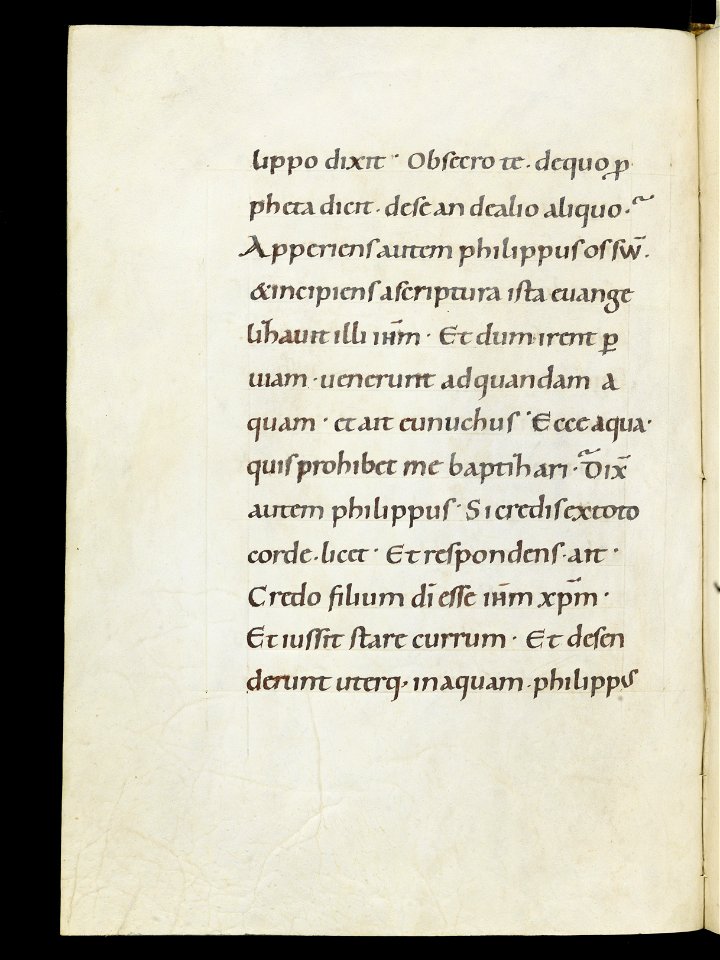 lippo dixit · Obsecro te · dequo ꝓ
pheta dicit · dese an dealio aliquo ·
Apperiens autem philippus os suū ·
&incipiens ascriptura ista euange
lihauit illi ihm̄ · Et dum irent ꝑ
uiam · uenerunt adquandam a
quam · et ait eunuchus · Ecce aqua ·
quisprohibet me baptihari · Dix̄
autem philippus · Si credis extoto
corde · licet · Et respondens · ait ·
Credo filium dī esse ihm̄ xp̄m ·
Et iussit stare currum · Et desen
derunt uterq· inaquam · philippus